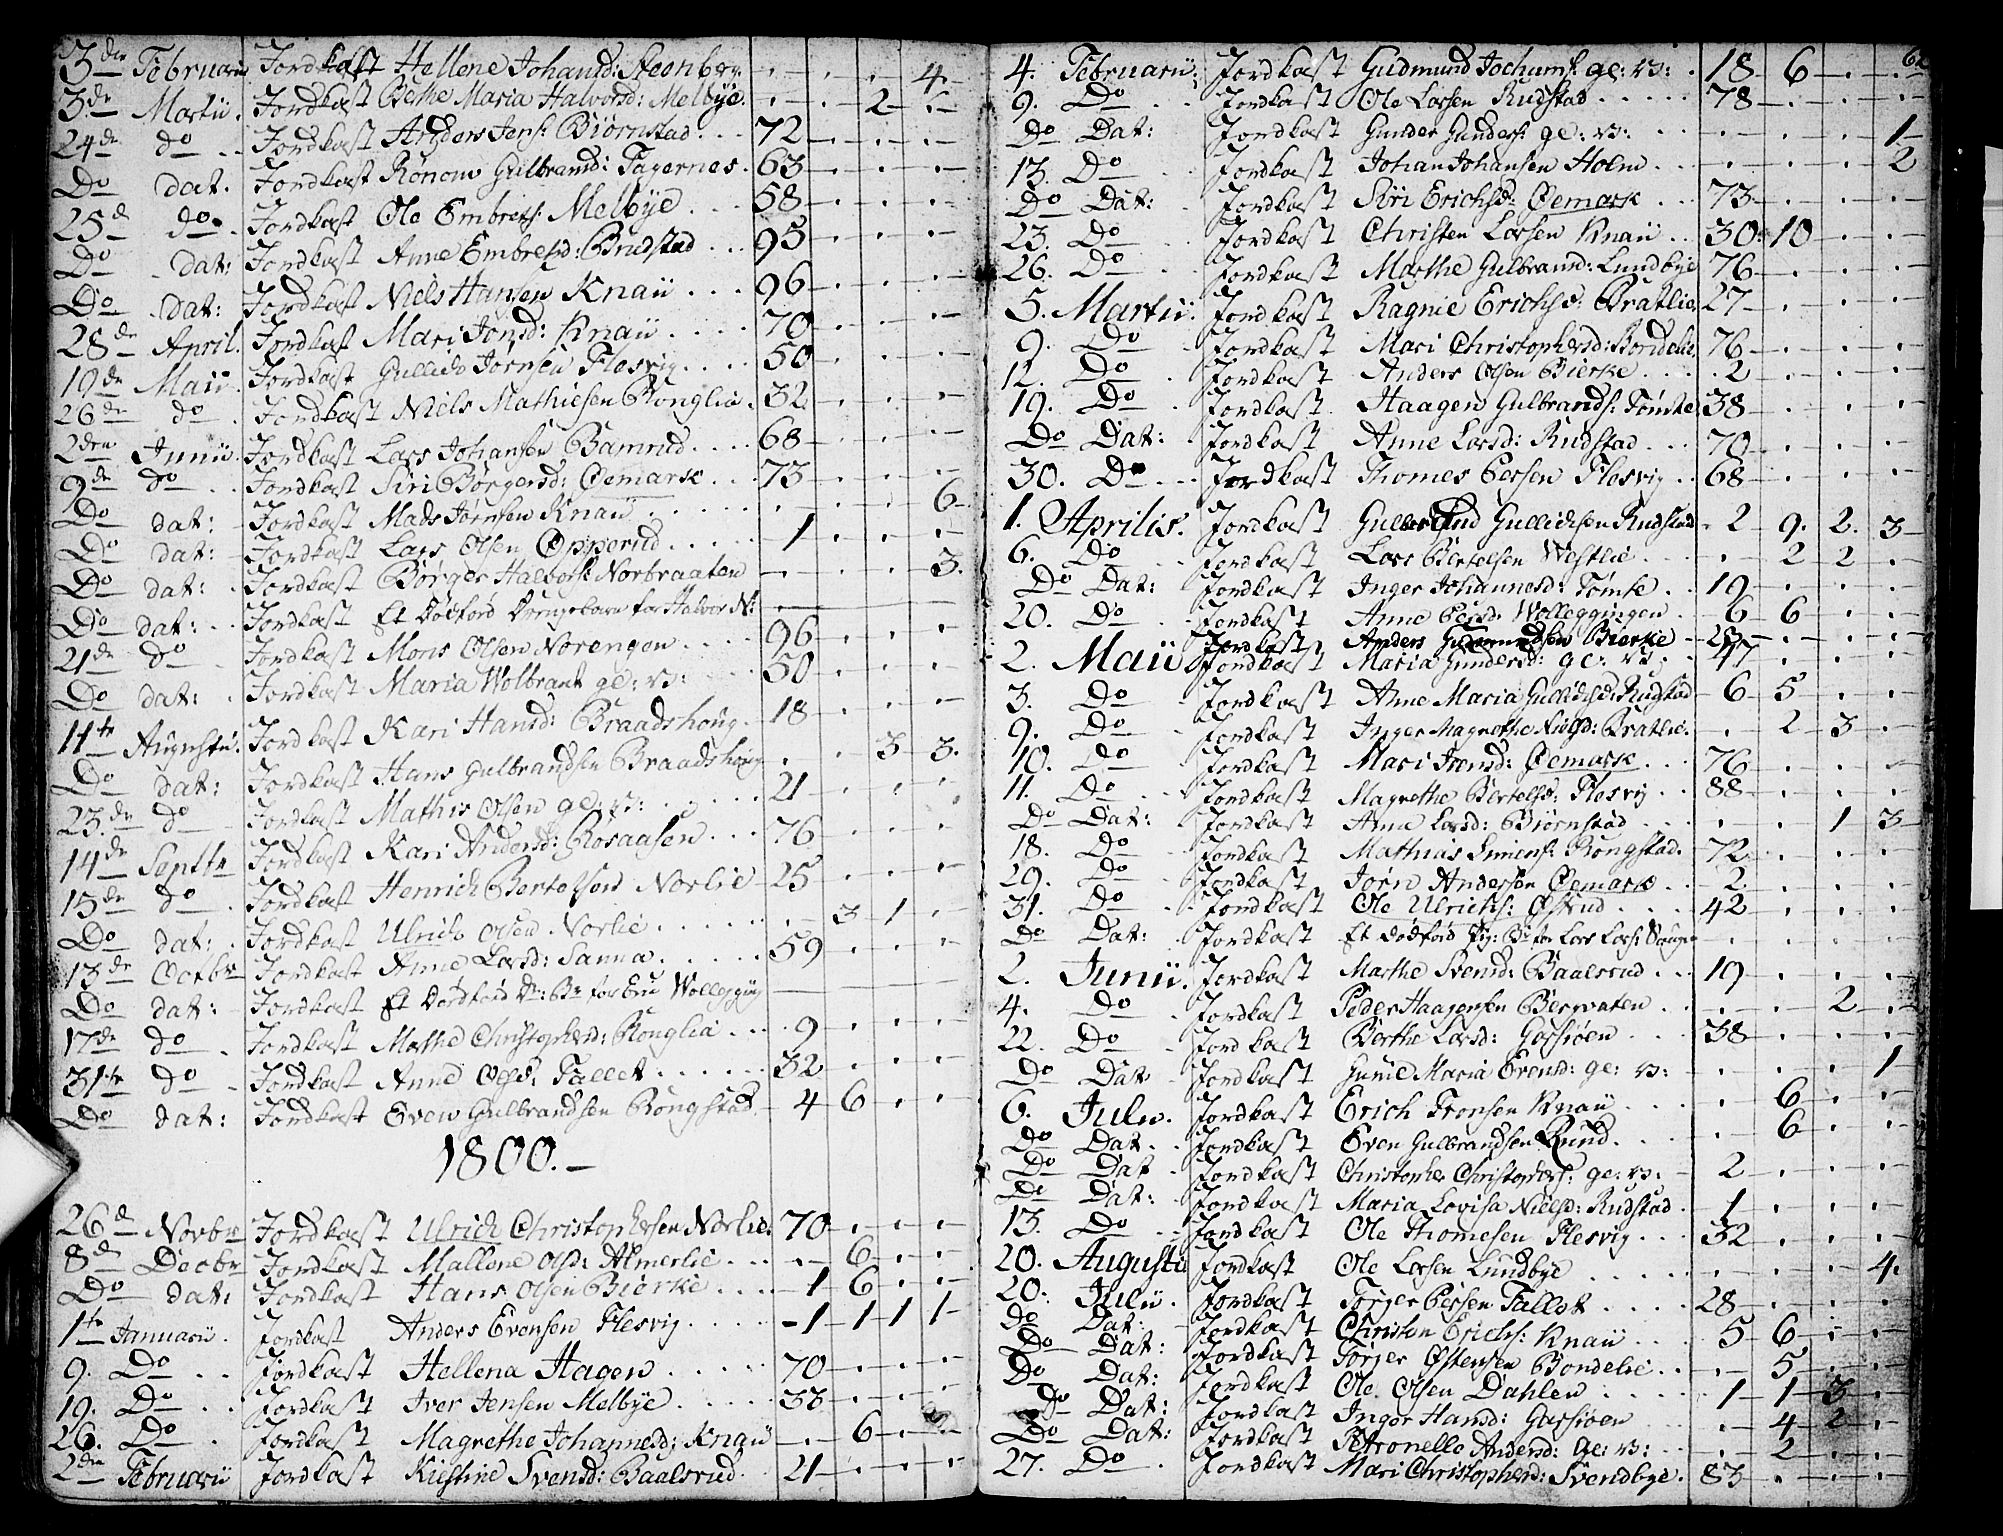 3die Februarii Jordkast Hellene Johansd: Steenberg . . . 4.
3de Martii. Jordkast Bethe Maria Halvorsd: Melbÿe. . . 2 .
24de do Jordkast Anders Jens: Biørnstad . . . 72 . . .
Do dat. Jordkast Rønow Gulbransd: Fagernes. 63 . . .
25d do Jordkast Ole Embrets: Melbÿe . . 58 . . .
Do dat: Jordkast Anne Embretsd: Rudstad . . 95 . . .
Do dat: Jordkast Niels Hansen Knaü . . . 96 . . .
28de April. Jordkast Mari Jonsd: Knaü . . . . 70 . . .
19de Maii. Jordkast Gullick Jornsen Flesvig . . . . 50 . . .
26de do Jordkast Niels Mathiesen Ronglia. 32 . . .
2den Junii. Jordkast Lars Johansen Bamrud . . . . 68 . . .
9de do Jordkast Siri Børgersd: Oemark . . . 73 . . .
Do dat: Jordkast Mads Jornsen Knaü . . . . . . . 6.
Do dat: Jordkast Lars Olsen Opperud . . . . . 1 . . .
Do dat: Jordkast Børger Halvors: Norbraaten . . . 3.
Do dat: Jordkast Et Dødfød Drengebarn for Halvor N:
21de do Jordkast Mons Olsen Norengen . . . 96 . . .
Do dat: Jordkast Maria Wolbrant ge: v: . . . 50 . . .
11te Augusti. Jordkast Kari Hansd: Braadshoug. 18 . . .
Do dat: Jordkast Hans Gulbrandsen Braadshoug . . 3 3.
23.de do Jordkast Mathis Olsen ge: v: . . . . . 21 . . .
14de Septbr Jordkast Kari Andersd: Rosaasen . . . 76 . . .
15de do Jordkast Henrich Bertelsen Norlie 25 . . .
Do dat: Jordkast Ulrich Olsen Norlie . . . . . . 3 1 .
13de Octbr Jordkast Anne Larsd: Sanna . . . . . 59 . . .
Do dat: Jordkast Et Dødfød Dr: Br for Wolleggüng
17de do Jordkast Mathe Christophersd: Ronglia . . . 9 . . .
31te do Jordkast Anne Olsd: Fallet . . . . . . 32 . . .
Do dat: Jordkast Even Gulbrandsen Rongstad 4 6 . .
1800.
26d Novbr Jordkast Ulrich Christophersen Norlie. 70 . . .
8de Decbr Jordkast Mallene Olsd: Almerlie . . . . 6 . .
Do dat: Jordkast Hans Olsen Bierke . . . . 1 6 . .
1te Januarii. Jordkast Anders Evensen Flesvig . . . . 1 1 1 1
9. Do Jordkast Hellena Hagen . . . . . 70 . . .
19. Do Jordkast Iver Jensen Melbÿe . . . . . 33 . . .
26. Do Jordkast Magrethe Johannesd: Knaü . 6 . .
2den Februarii Jordkast Kiestine Svensd: Baalsrud. 21 . . .
62
4. Februarii. Jordkast Gudmund Jochums: ge: v: . 18 6 . .
9. Do Jordkast Ole Larsen Rudstad . . . . . 78 . . .
Do Dat: Jordkast Gunder Gunders: ge: v: . . . 1
13. Do Jordkast Johan Johansen Holm . . . . . 2
Do Dat: Jordkast Siri Erichsd: Oemark . . 73 . . .
23. Do Jordkast Christen Larsen Knaü . . 30 10 . .
26. Do Jordkast Marthe Gulbransd: Lundbÿe 76 . . .
5. Martii. Jordkast Ragnie Erichsd: Bratlie. 27 . . .
9. Do Jordkast Mari Christophersd: Bondelie 76 . . .
12. Do Jordkast Anders Olsen Bierke . . . . 2 . . .
19. Do Jordkast Haagen Gulbrands: Tomte 38 . . .
Do Dat: Jordkast Anne Larsd: Rudstad . . . 70 . . .
30. Do Jordkast Thomes Persen Flesvig . . 68 . . .
1. Aprilis. Jordkast Gulbrand Gullicksen Rudstad 2 9. 2. 3
6. Do Jordkast Lars Bertelsen Westlie . . . . 2 2 .
Do Dat: Jordkast Inger Johannesd: Tomte . . 19 . . .
20. Do Jordkast Anne Persd: Wolleggingen . . 6 6 . .
Jordkast Anders Gudmundsen Bierke 27
2. Maii Jordkast Maria Gundersd: ge: v: . . 47 . . .
3. Do Jordkast Anne Maria Gullicksd: Rudstad 6 5 . .
9. Do Jordkast Inger Magrethe Nielsd: Bratlie. . 2 3 .
10. Do Jordkast Mari Jrensd: Oemark . . . 76 . . .
11. Do Jordkast Magrethe Bertelsd: Flesvig . . 88 . . .
Do Dat: Jordkast Anne Larsd: Biørnstad . . . . . . 1 3
18. Do Jordkast Mathias Simens: Rongstad. 72 . . .
29. Do Jordkast Jorn Andersen Oemark . . 2 . . .
31. Do Jordkast Ole Ulrichs: Ofstrud . . . . 42 . . .
Do Dat: Jordkast Et dødfød Pig: Br for Lars Lars: Hauge
2. Junii. Jordkast Marthe Svensd: Baalsrud . . . 19 . . .
4. Do Jordkast Peder Haagensen Bergvaten . . . . 2 .
22. Do Jordkast Berthe Larsd: Garsiøen . . . 38 . . .
Do Dat Jordkast Gunie Maria Evensd: ge: v: . . . 1
6. Julii. Jordkast Erich Tronsen Knaü . . . . 6 . .
Do Dat. Jordkast Even Gulbrandsen Rund. . . . 6
Do Dat Jordkast Christopher Christophers: ge: v: 2 . . .
Do Dat: Jordkast Maria Lovisa Nielsd: Rudstad . 1 . . .
13. Do Jordkast Ole Thomesen Flesvig . . . 32 . . .
20. Augusti Jordkast Ole Larsen Lundbye . . . . . 4.
20. Julii. Jordkast Torger Persen Fallet . . . . 28 . . .
Do Dat: Jordkast Christen Erichs: Knaü . . . 5 6 . .
Do Dat: Jordkast Torger Ostensen Bondelie . . . 5 . .
Do Dat: Jordkast Ole Olsen Dahlen . . . . . 1 1 3 .
Do Dat: Jordkast Inger Hansd: Garsiøen . . . 4 2 .
Do Dat: Jordkast Petronelle Andersd: ge: v: . . 2 . .
27. Do Jordkast Mari Christophersd: Svendbye. 83 . . .